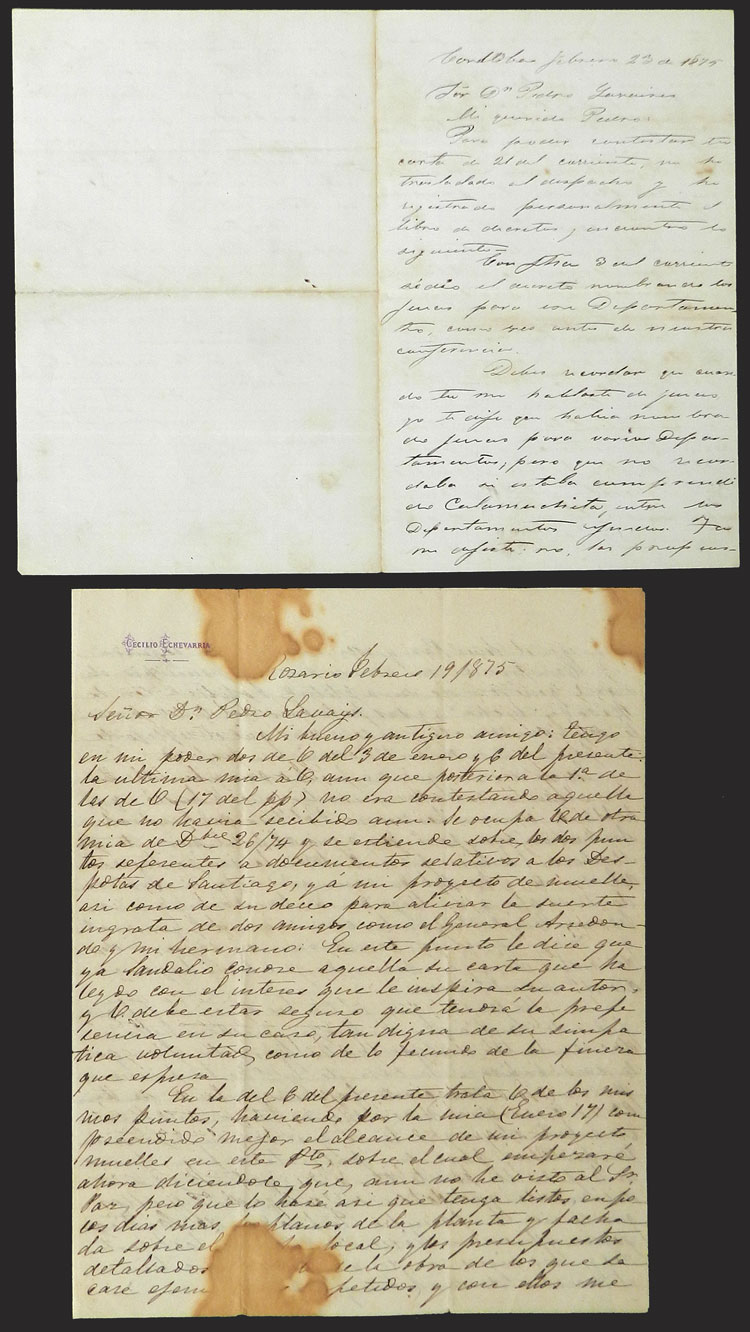 Cordoba febrero 23 de 1875
Sor Dn Pedro
Mi querido Pedro:
Para poder contestar tu
carta de 21 del corriente, me he
trasladado al despacho y he
registrado personalmente el
libro de decretos, encuentro lo
siguiente=
Con fha 3 del corriente
se dió el decreto nombrando los
jueces para ese Departamen-
to, como ves antes de nuestra
conferencia.
Debes recordar que cuan-
do tu me hablaste de jueces
yo te dije que habia nombra-
do jueces para varios Depar-
tamentos, pero que no recor-
daba si estaba comprendi
do Calamuchita, entre los
Departamentos
me dijiste: no, las propues-
CECILIO ECHEVARRIA
Rosario Febrero 19/875
Señor Dn Pedro
Mi bueno y antiguo amigo: tengo
en mi poder dos de U del 3 de enero y 6 del presente.
la ultima mia a U, aun que posterior a la 1a de
las de U (17 del pp) no era contestando aquella
que no havia recibido aun. Se ocupa U de otra
mia de Dbre 26/74 y se estiende sobre los dos pun
tos referentes a documentos relativos a los Des-
potas de Santiago, y á mi proyecto de muelle,
asi como de su deceo para aliviar la suerte
ingrata de dos amigos como el General Arredon-
do y mi hermano: En este punto le dice que
ya Sandalio conoce aquella su carta que ha
leydo con el interes que le inspira su autor,
y U debe estar seguro que tendrá la prefe
rencia en su caso, tan digna de su simpa
tica voluntad, como de lo fecundo de la
que espresa
En la del 6 del presente trata U de los mis
mos puntos, haviendo por la mia (Enero 17) com
prendido mejor el alcance de mi proyecto
muelles en este Pto, sobre el cual empezaré
ahora diciendole que, aun no he visto al Sr.
Paz, pero que lo haré asi que tenga listos en po
cos dias mas, los planos de la planta y facha
da sobre el local, y los presupuestos
detallados de la obra de los que sa
care ejem petidos, y con ellos me